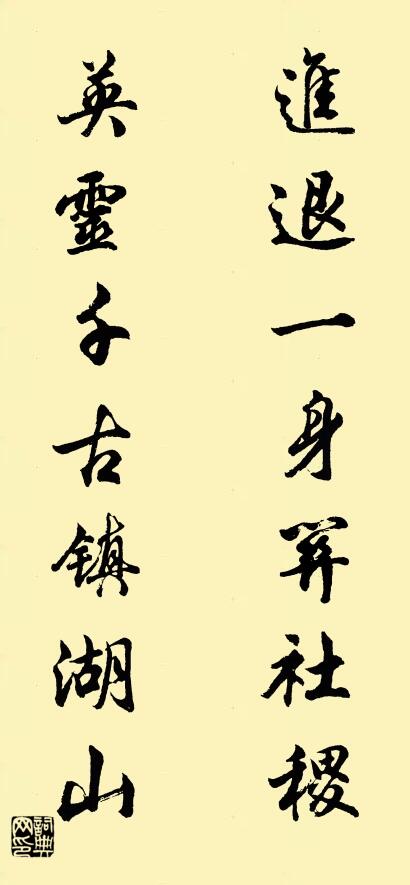 進退一身関社稷
英靈千古镇湖山
詞典网印